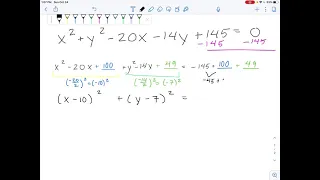 x² + y² - 20x - 14y + 145 = 0
-145 -145
x² - 20x + 100 + y² - 14y + 49 = -145 + 100 + 49
(-20/2)² = (-10)² (-14/2)² = (-7)² -45 +
(x - 10)² + (y - 7)² =